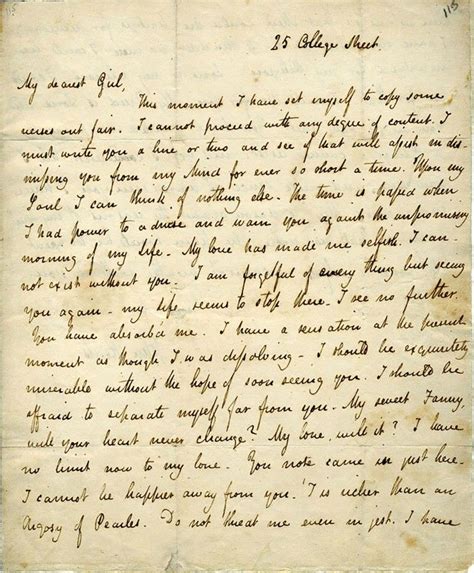 115
25 College Street.
My dearest Girl,
This moment I have set myself to copy some
verses out fair. I cannot proceed with any degree of content. I
must write you a line or two and see if that will assist in dis-
missing you from my Mind for ever so short a time. Upon my
Soul I can think of nothing else. The time is passed when
I had power to advise and warn you against the unpromising
morning of my Life. My love has made me selfish. I can-
not exist without you. I am forgetful of every thing but seeing
you again - my Life seems to stop there. I see no further.
You have absorb'd me. I have a sensation at the present
moment as though I was dissolving - I should be exquisitely
miserable without the hope of soon seeing you. I should be
affraid to separate myself far from you. My sweet Fanny,
will your heart never change? My love, will it? I have
no limit now to my love. You note came in just here.
I cannot be happier away from you. 'T is richer than an
Argosy of Pearles. Do not threat me even in jest. I have